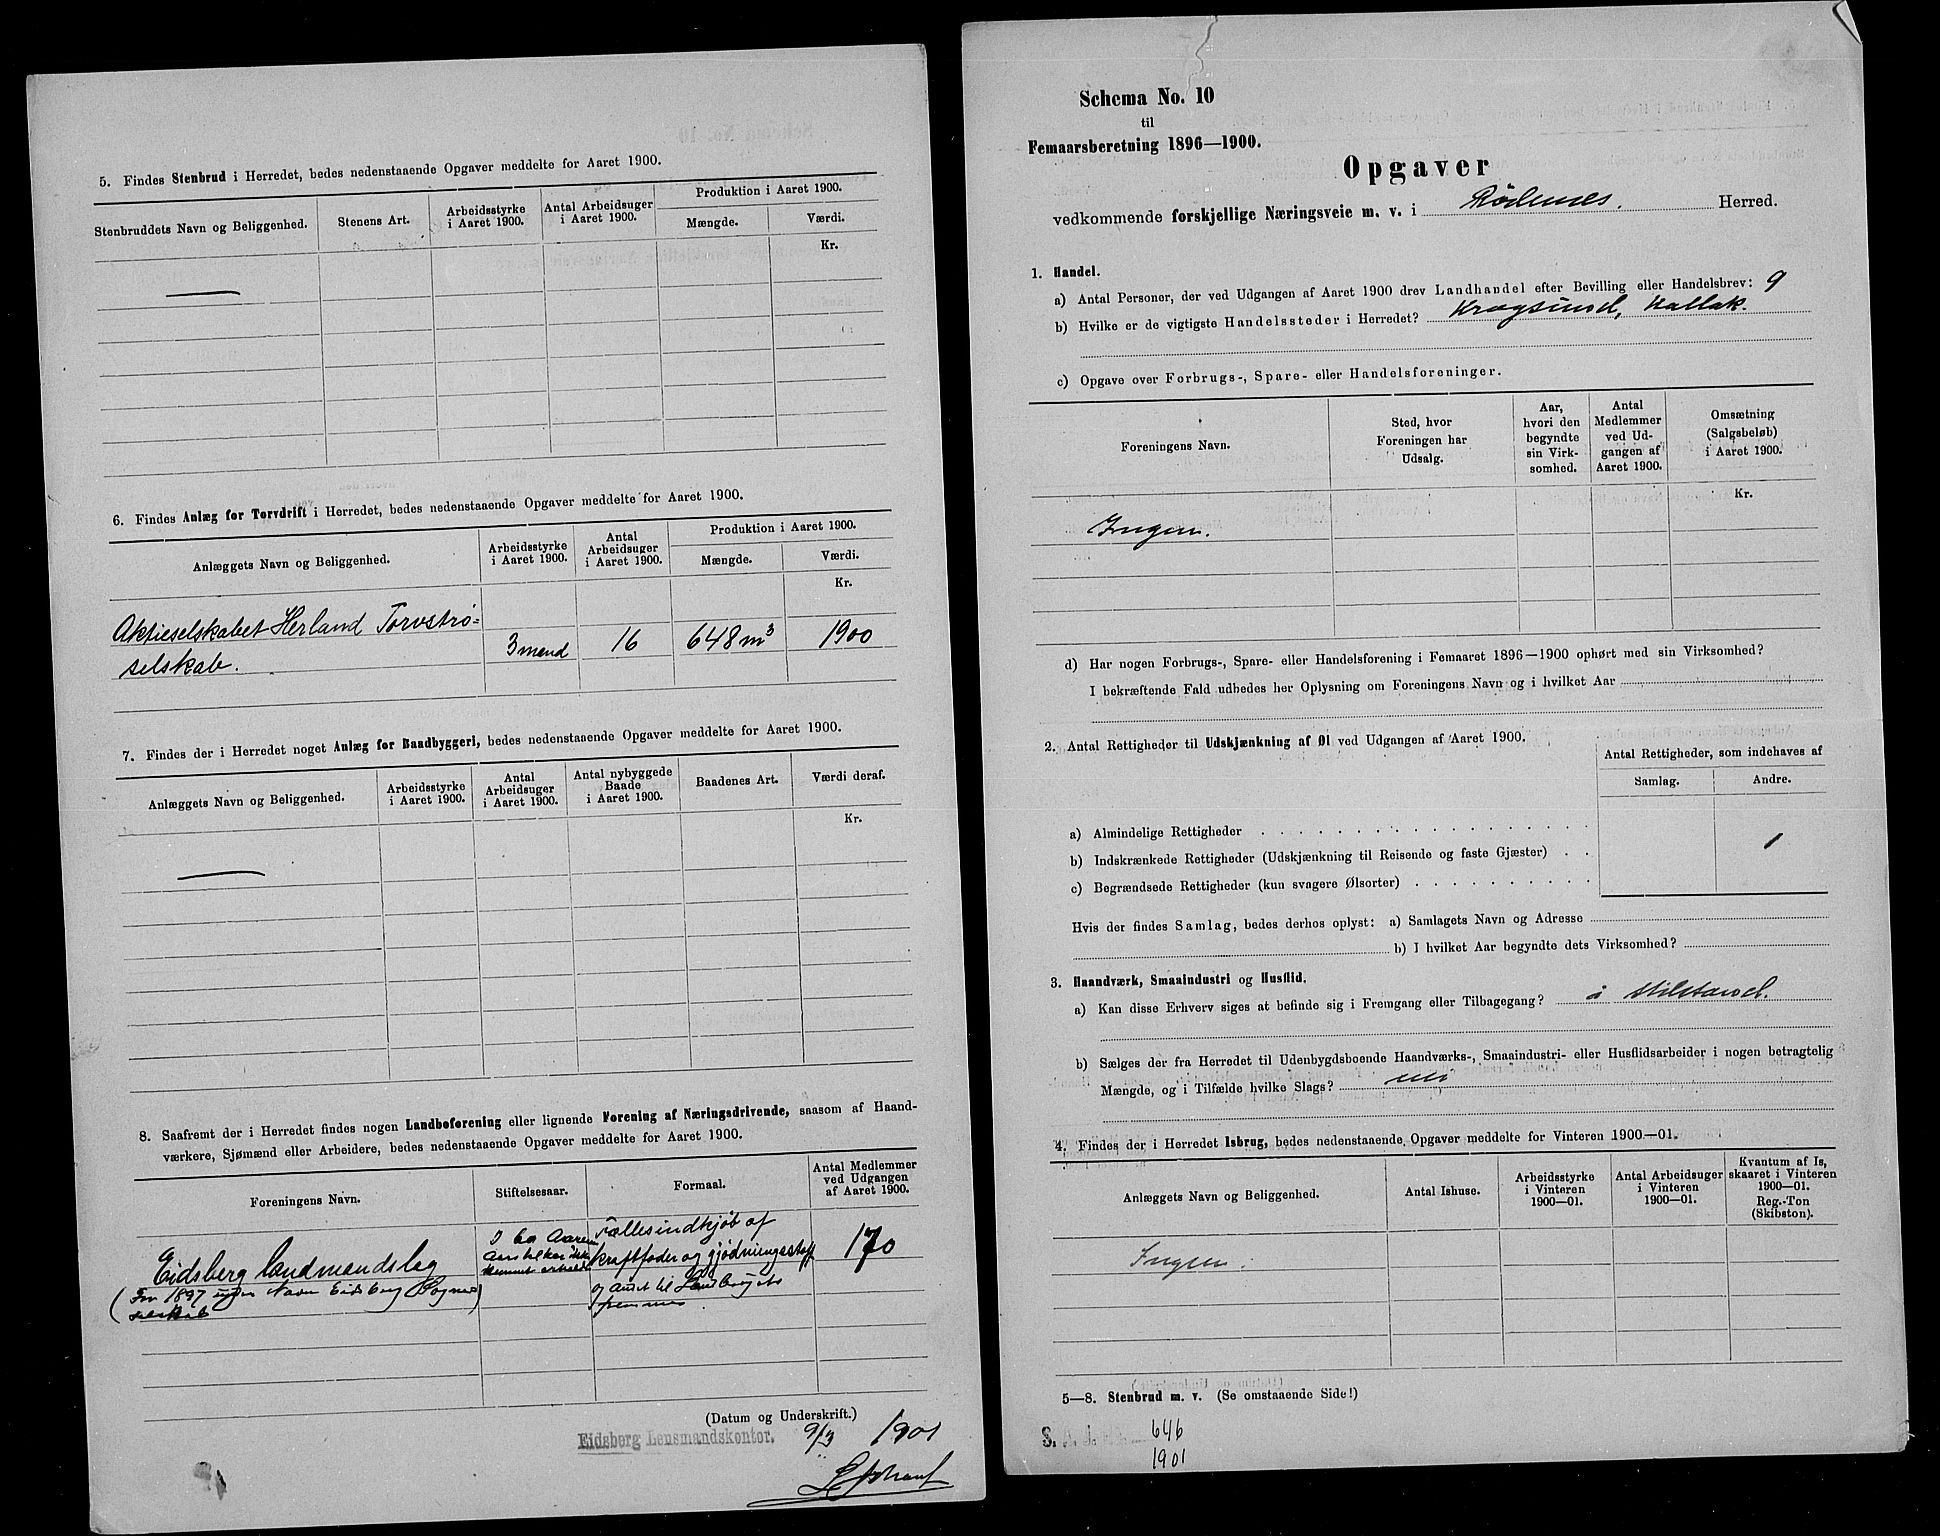 5. Findes Stenbrud i Herredet, bedes nedenstaaende Opgaver meddelte for Aaret 1900.
Stenbruddets Navn og Beliggenhed.
Stenens Art.
Arbeidsstyrke
i Aaret 1900.
Antal Arbeidsuger
i Aaret 1900.
Produktion i Aaret 1900.
Mængde.
Værdi.
Kr.
6. Findes Anlæg for Torvdrift i Herredet, bedes nedenstaaende Opgaver meddelte for Aaret 1900.
Anlæggets Navn og Beliggenhed.
Arbeidsstyrke
i Aaret 1900.
Antal
Arbeidsuger
i Aaret 1900.
Produktion i Aaret 1900.
Mængde.
Værdi.
Kr.
Aktieselskabet Herland Torvstrø-
selskab.
3 mand
16
648 m³
1900
7. Findes der i Herredet noget Anlæg for Baadbyggeri, bedes nedenstaaende Opgaver meddelte for Aaret 1900.
Anlæggets Navn og Beliggenhed.
Arbeidsstyrke
i Aaret 1900.
Antal
Arbeidsuger
i Aaret 1900.
Antal nybyggede
Baade
i Aaret 1900.
Baadenes Art.
Værdi deraf.
Kr.
8. Saafremt der i Herredet findes nogen Landboforening eller lignende Forening af Næringsdrivende, saasom af Haand-
værkere, Sjømænd eller Arbeidere, bedes nedenstaaende Opgaver meddelte for Aaret 1900.
Foreningens Navn.
Stiftelsesaar.
Formaal.
Antal Medlemmer
ved Udgangen
af Aaret 1900.
Eidsberg landmandslag
(Før 1897 under Navn Eidsberg Sogne-
selskab)
Fællesindkjøb af
kraftfoder og gjødningsstoff
og andet til Landbrugets
fremme.
170
(Datum og Underskrift.)
Eidsberg Lensmandskontor. 9/3 1901
Schema No. 10
til
Femaarsberetning 1896—1900.
Opgaver
vedkommende forskjellige Næringsveie m. v. i Rødenes. Herred.
1. Handel.
a) Antal Personer, der ved Udgangen af Aaret 1900 drev Landhandel efter Bevilling eller Handelsbrev: 9
b) Hvilke er de vigtigste Handelssteder i Herredet? Krogsund, Kallak.
c) Opgave over Forbrugs-, Spare- eller Handelsforeninger.
Foreningens Navn.
Sted, hvor
Foreningen har
Udsalg.
Aar,
hvori den
begyndte
sin Virk-
somhed.
Antal
Medlemmer
ved Ud-
gangen af
Aaret 1900.
Omsætning
(Salgsbeløb)
i Aaret 1900.
Kr.
Ingen.
d) Har nogen Forbrugs-, Spare- eller Handelsforening i Femaaret 1896—1900 ophørt med sin Virksomhed?
I bekræftende Fald udbedes her Oplysning om Foreningens Navn og i hvilket Aar
2. Antal Rettigheder til Udskjænkning af Øl ved Udgangen af Aaret 1900.
Antal Rettigheder, som indehaves af
Samlag.
Andre.
a) Almindelige Rettigheder
b) Indskrænkede Rettigheder (Udskjænkning til Reisende og faste Gjæster)
1
c) Begrændsede Rettigheder (kun svagere Ølsorter)
Hvis der findes Samlag, bedes derhos oplyst: a) Samlagets Navn og Adresse
b) I hvilket Aar begyndte dets Virksomhed?
3. Haandværk, Smaaindustri og Husflid.
a) Kan disse Erhverv siges at befinde sig i Fremgang eller Tilbagegang? i stilstand.
b) Sælges der fra Herredet til Udenbygdsboende Haandværks-, Smaaindustri- eller Husflidsarbeider i nogen betragtelig
Mængde, og i Tilfælde hvilke Slags? nei
4. Findes der i Herredet Isbrug, bedes nedenstaaende Opgaver meddelte for Vinteren 1900—01.
Anlæggets Navn og Beliggenhed.
Antal Ishuse.
Arbeidsstyrke
i Vinteren
1900—01.
Antal Arbeidsuger
i Vinteren
1900—01.
Kvantum af Is,
skaaret i Vinteren
1900—01.
Reg.-Ton
(Skibston).
Ingen.
5—8. Stenbrud m. v. (Se omstaaende Side!)
646
1901